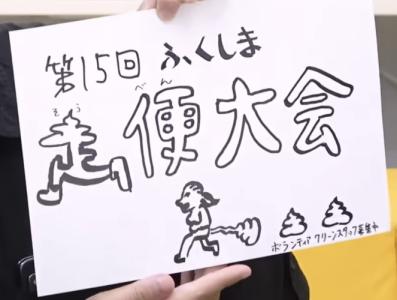 第15回 ふくしま
そう べん
走便大会
ボランティア クリーンスタッフ募集中